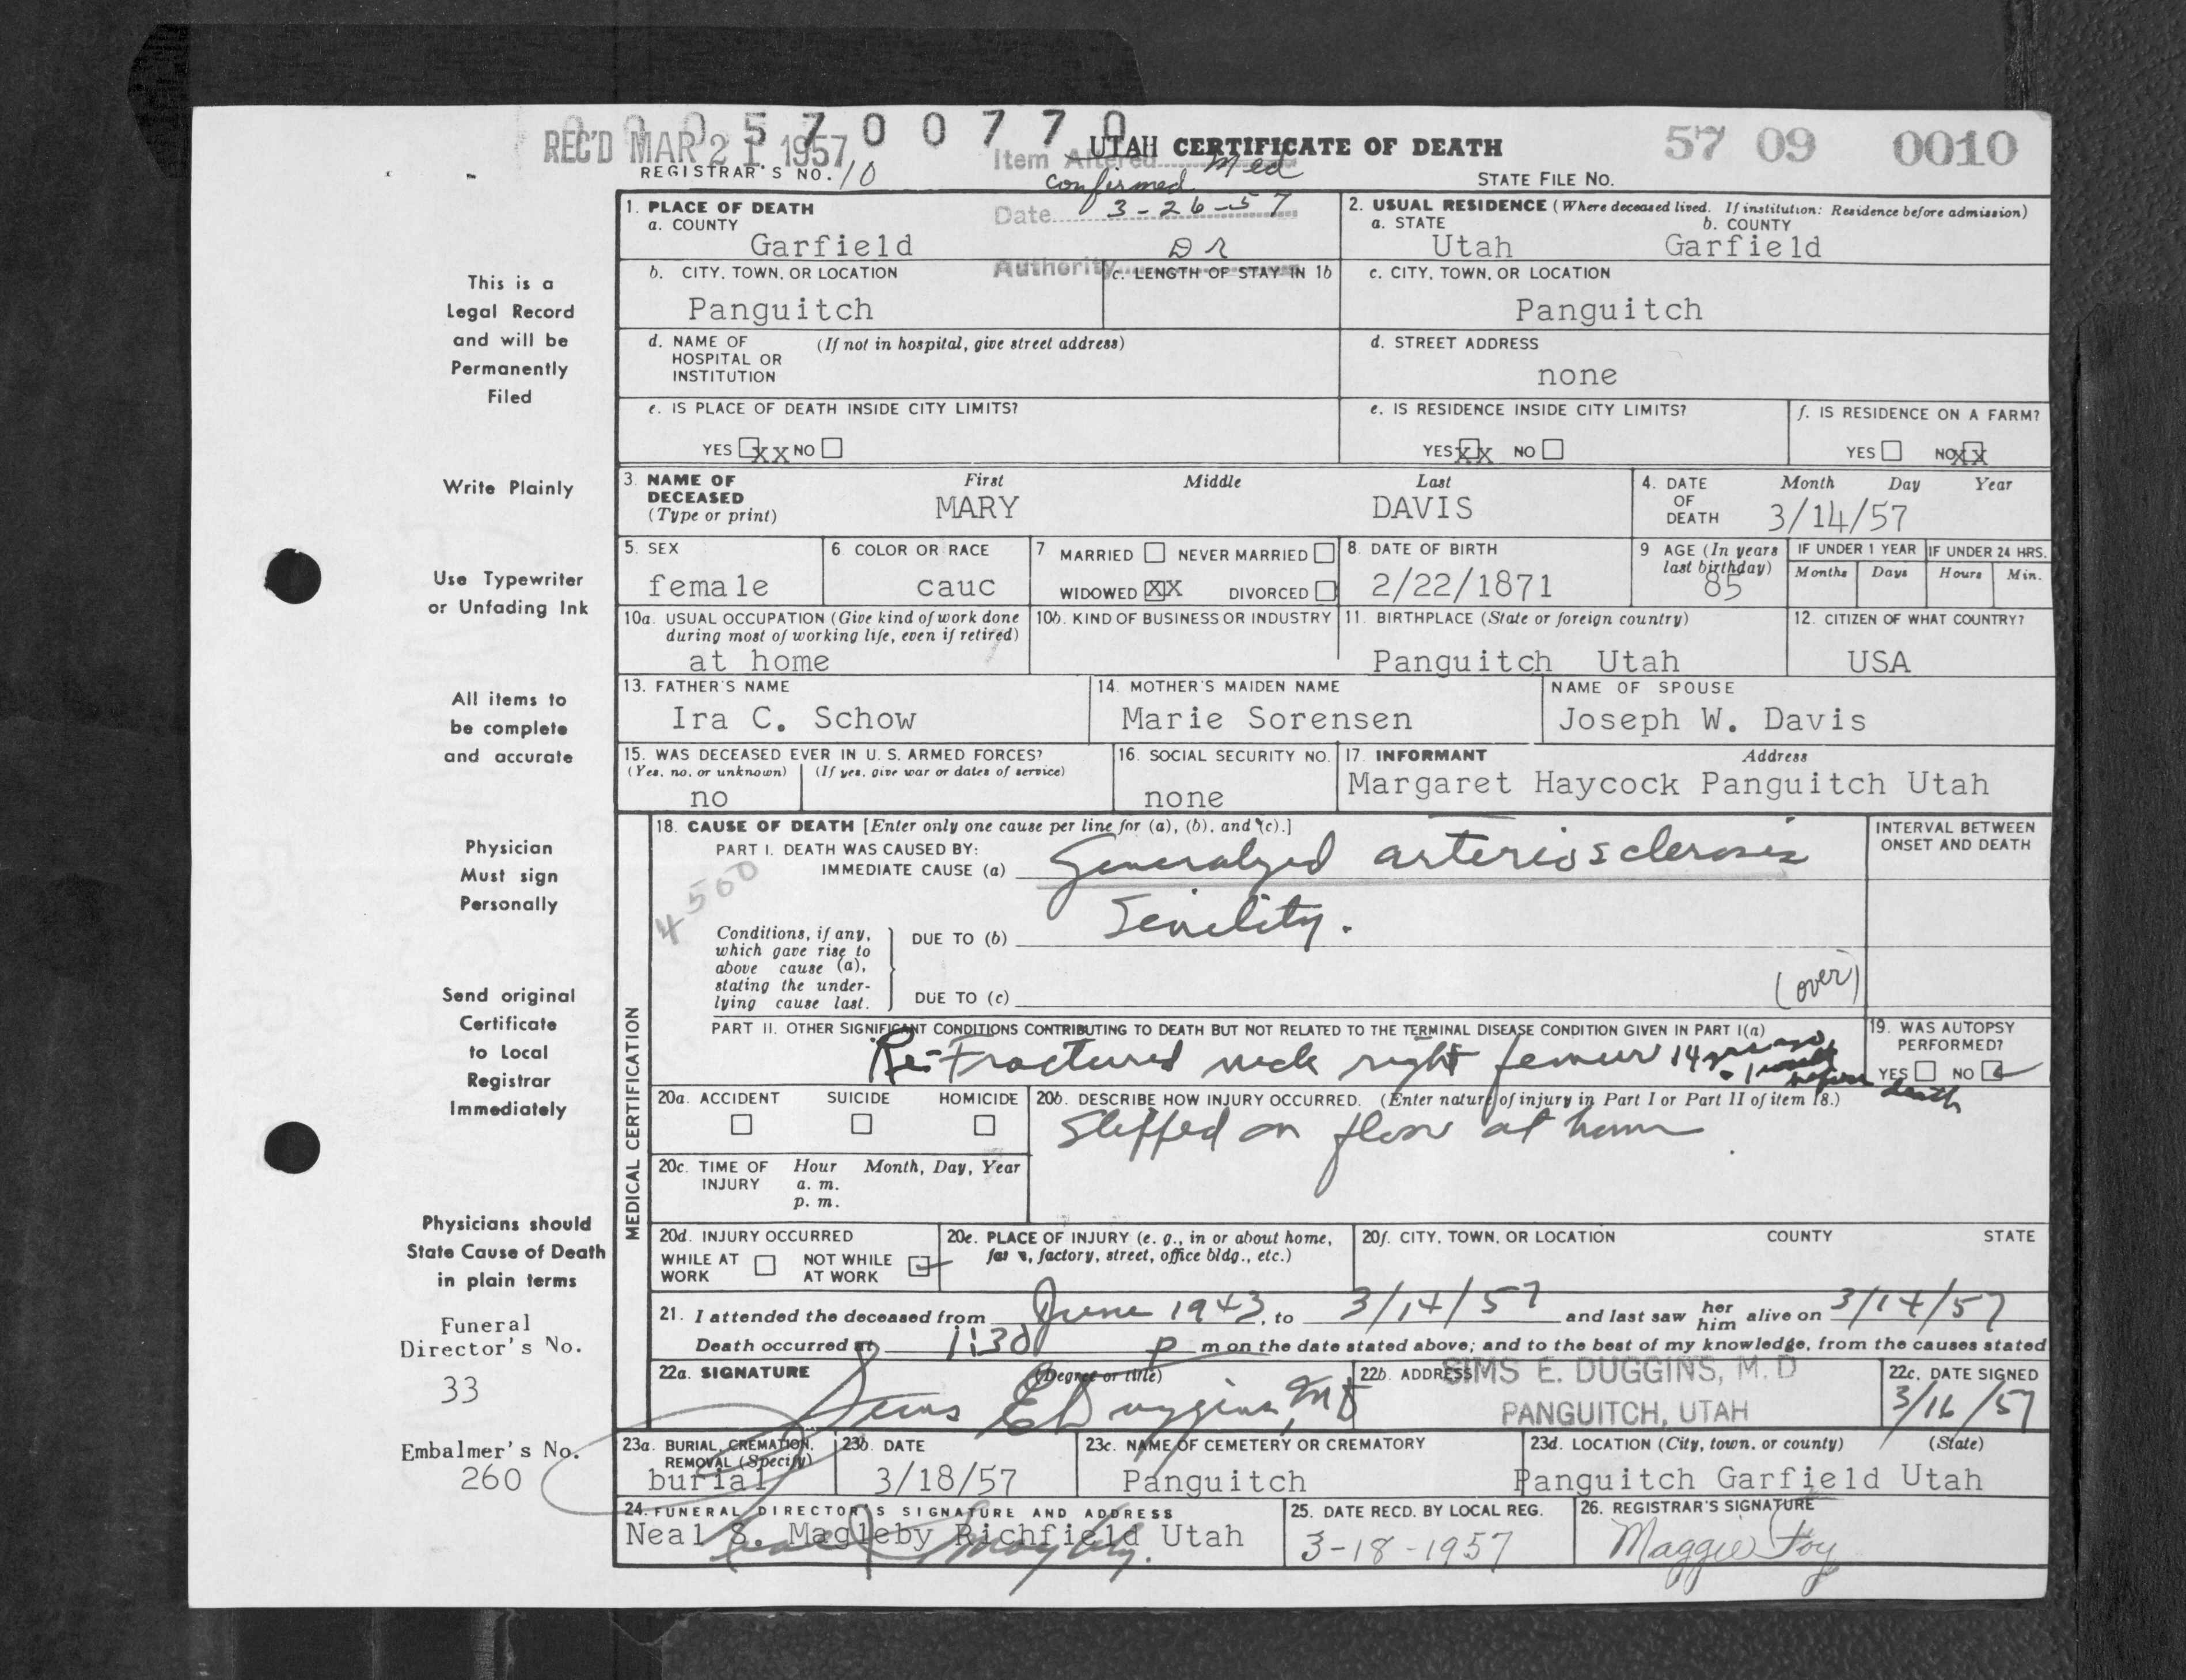 0005700770
REC'D MAR 21 1957 UTAH CERTIFICATE OF DEATH 57 09 0010
REGISTRAR'S NO. 10 Item Altered Med STATE FILE NO.
confirmed
Date 3-26-57
Authority DR
1. PLACE OF DEATH
a. COUNTY
Garfield
2. USUAL RESIDENCE (Where deceased lived. If institution: Residence before admission)
a. STATE b. COUNTY
Utah Garfield
b. CITY, TOWN, OR LOCATION
Panguitch
c. LENGTH OF STAY IN 1b
c. CITY, TOWN, OR LOCATION
Panguitch
d. NAME OF (If not in hospital, give street address)
HOSPITAL OR
INSTITUTION
d. STREET ADDRESS
none
e. IS PLACE OF DEATH INSIDE CITY LIMITS?
YES XX NO
e. IS RESIDENCE INSIDE CITY LIMITS?
YES XX NO
f. IS RESIDENCE ON A FARM?
YES NO XX
3. NAME OF DECEASED (Type or print)
First Middle Last
MARY DAVIS
4. DATE OF DEATH Month Day Year
3/14/57
5. SEX
female
6 COLOR OR RACE
cauc
7 MARRIED NEVER MARRIED
WIDOWED XX DIVORCED
8. DATE OF BIRTH
2/22/1871
9 AGE (In years last birthday)
85
IF UNDER 1 YEAR IF UNDER 24 HRS.
Months Days Hours Min.
10a. USUAL OCCUPATION (Give kind of work done
during most of working life, even if retired)
at home
10b. KIND OF BUSINESS OR INDUSTRY
11. BIRTHPLACE (State or foreign country)
Panguitch Utah
12. CITIZEN OF WHAT COUNTRY?
USA
13. FATHER'S NAME
Ira C. Schow
14. MOTHER'S MAIDEN NAME
Marie Sorensen
NAME OF SPOUSE
Joseph W. Davis
15. WAS DECEASED EVER IN U. S. ARMED FORCES?
(Yes, no, or unknown) (If yes, give war or dates of service)
no
16. SOCIAL SECURITY NO.
none
17. INFORMANT Address
Margaret Haycock Panguitch Utah
MEDICAL CERTIFICATION
18. CAUSE OF DEATH [Enter only one cause per line for (a), (b), and (c).]
PART I. DEATH WAS CAUSED BY:
IMMEDIATE CAUSE (a) Generalyed arteriosclerosis
INTERVAL BETWEEN
ONSET AND DEATH
4500
Conditions, if any,
which gave rise to
above cause (a),
stating the under-
lying cause last.
DUE TO (b) Senility.
DUE TO (c) (over)
PART II. OTHER SIGNIFICANT CONDITIONS CONTRIBUTING TO DEATH BUT NOT RELATED TO THE TERMINAL DISEASE CONDITION GIVEN IN PART I(a)
Re-Fractured neck right femur 14 yrs ago
1 week before death
19. WAS AUTOPSY
PERFORMED?
YES NO
20a. ACCIDENT SUICIDE HOMICIDE
20b. DESCRIBE HOW INJURY OCCURRED. (Enter nature of injury in Part I or Part II of item 18.)
Slipped on floor at home
20c. TIME OF INJURY Hour Month, Day, Year
a. m.
p. m.
20d. INJURY OCCURRED
WHILE AT WORK NOT WHILE AT WORK
20e. PLACE OF INJURY (e. g., in or about home,
farm, factory, street, office bldg., etc.)
20f. CITY, TOWN, OR LOCATION COUNTY STATE
21. I attended the deceased from June 1943, to 3/14/57 and last saw her him alive on 3/14/57
Death occurred at 1:30 p m on the date stated above; and to the best of my knowledge, from the causes stated
22a. SIGNATURE (Degree or title)
Sims E Duggins, MD
22b. ADDRESS
SIMS E. DUGGINS, M. D
PANGUITCH, UTAH
22c. DATE SIGNED
3/16/57
23a. BURIAL, CREMATION,
REMOVAL (Specify)
burial
23b. DATE
3/18/57
23c. NAME OF CEMETERY OR CREMATORY
Panguitch
23d. LOCATION (City, town, or county) (State)
Panguitch Garfield Utah
24. FUNERAL DIRECTOR'S SIGNATURE AND ADDRESS
Neal S. Magleby Richfield Utah
Neal S Magleby.
25. DATE RECD. BY LOCAL REG.
3-18-1957
26. REGISTRAR'S SIGNATURE
Maggie Foy
This is a
Legal Record
and will be
Permanently
Filed
Write Plainly
Use Typewriter
or Unfading Ink
All items to
be complete
and accurate
Physician
Must sign
Personally
Send original
Certificate
to Local
Registrar
Immediately
Physicians should
State Cause of Death
in plain terms
Funeral
Director's No.
33
Embalmer's No.
260